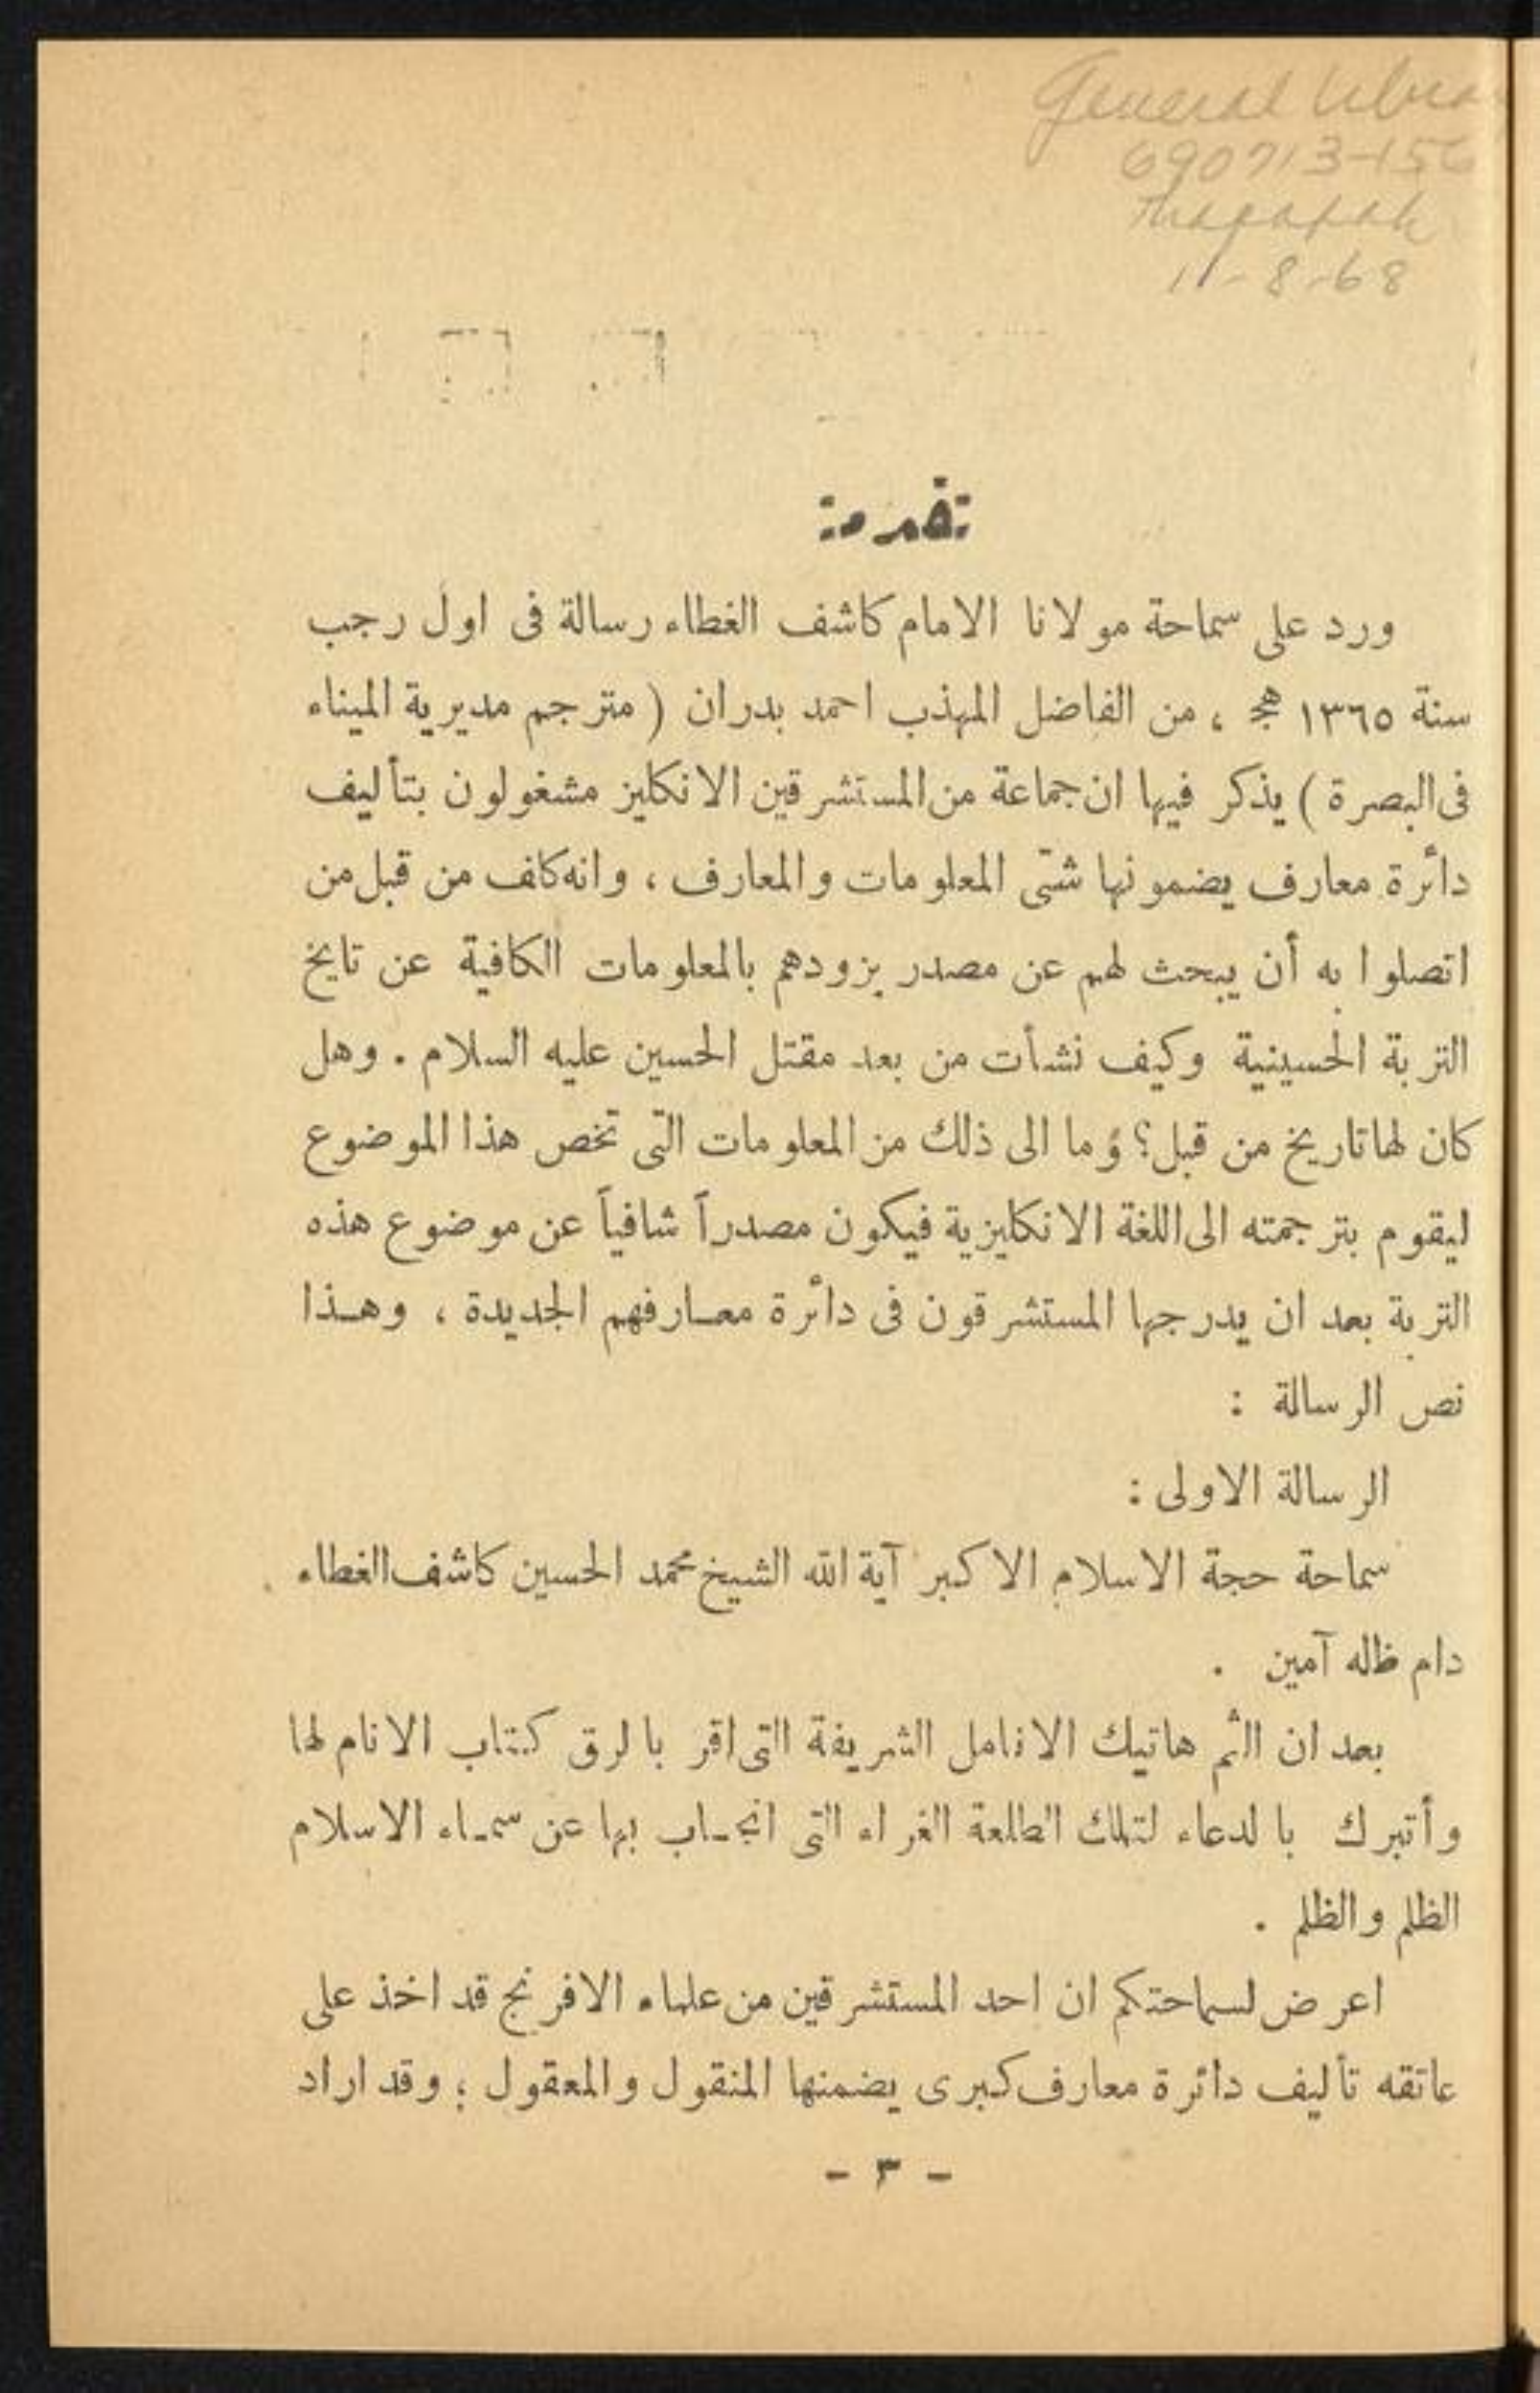 General Libra
690713-156
11-8-68
تقدمة
ورد على سماحة مولانا الامام كاشف الغطاء رسالة فى اول رجب
سنة ١٣٦٥ هج ، من الفاضل المهذب احمد بدران ( مترجم مديرية الميناء
فى البصرة ) يذكر فيها ان جماعة من المستشرقين الانكليز مشغولون بتأليف
دائرة معارف يضمونها شتى المعلومات والمعارف ، وانه كلف من قبل من
اتصلوا به أن يبحث لهم عن مصدر يزودهم بالمعلومات الكافية عن تايخ
التربة الحسينية وكيف نشأت من بعد مقتل الحسين عليه السلام . وهل
كان لها تاريخ من قبل؟ وما الى ذلك من المعلومات التى تخص هذا الموضوع
ليقوم بترجمته الى اللغة الانكليزية فيكون مصدراً شافياً عن موضوع هذه
التربة بعد ان يدرجها المستشرقون فى دائرة معارفهم الجديدة ، وهذا
نص الرسالة :
الرسالة الاولى :
سماحة حجة الاسلام الاكبر آية الله الشيخ محمد الحسين كاشف الغطاء
دام ظله آمين .
بعد ان الثم هاتيك الانامل الشريفة التى اقر بالرق كتاب الانام لها
وأتبرك بالدعاء لتلك الطلعة الغراء التى انجاب بها عن سماء الاسلام
الظلم والظلم .
اعرض لسماحتكم ان احد المستشرقين من علماء الافرنج قد اخذ على
عاتقه تأليف دائرة معارف كبرى يضمنها المنقول والمعقول ؛ وقد اراد
- ٣ -